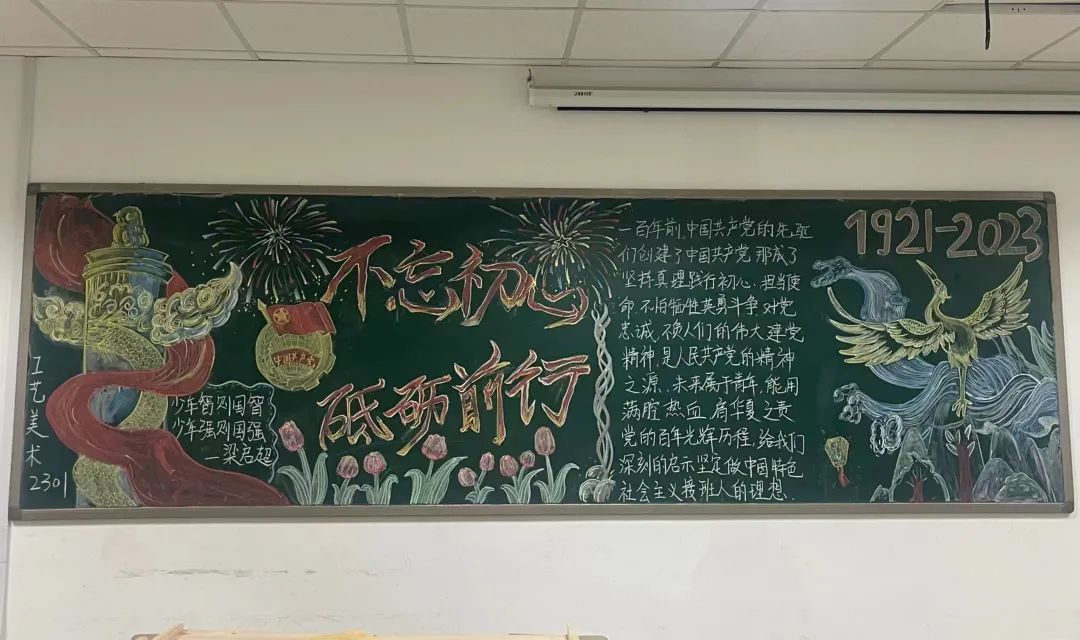 工艺美术
2301
少年智则国智
少年强则国强
—梁启超
中国共产党
不忘初心
砥砺前行
一百年前,中国共产党的先驱
们创建了中国共产党,形成了
坚持真理践行初心、担当使
命,不怕牺牲英勇斗争,对党
忠诚,不负人们的伟大建党
精神,是人民共产党的精神
之源、未来属于青年,能用
满腔热血,肩华夏之责
党的百年光辉历程,给我们
深刻的启示坚定做中国特色
社会主义接班人的理想.
1921-2023